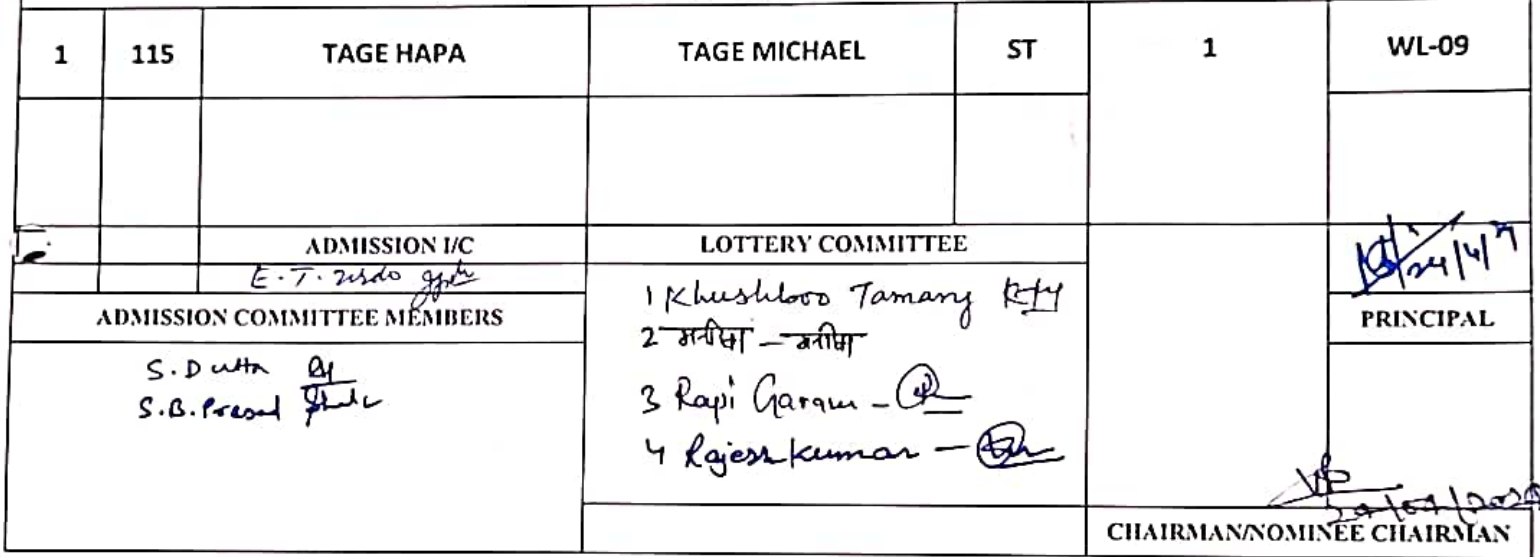 1 115 TAGE HAPA TAGE MICHAEL ST 1 WL-09
ADMISSION I/C LOTTERY COMMITTEE
E.T.
ADMISSION COMMITTEE MEMBERS
S. Dutta
S.B. Prasad
1 Khushboo Tamang
2 मनीषा – मनीषा
3 Rapi Garam -
4 Rajesh Kumar -
24/4/
PRINCIPAL
CHAIRMAN/NOMINEE CHAIRMAN